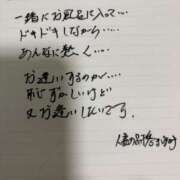 一緒にお風呂に入って…
ドキドキしながら……
あんなに熱く……
お逢いするのが……
恥ずかしいけど
又お逢いしたいです。